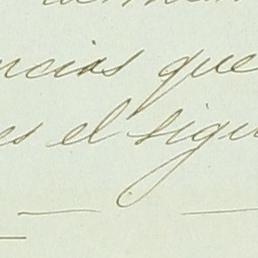 ncias que
es el sigu